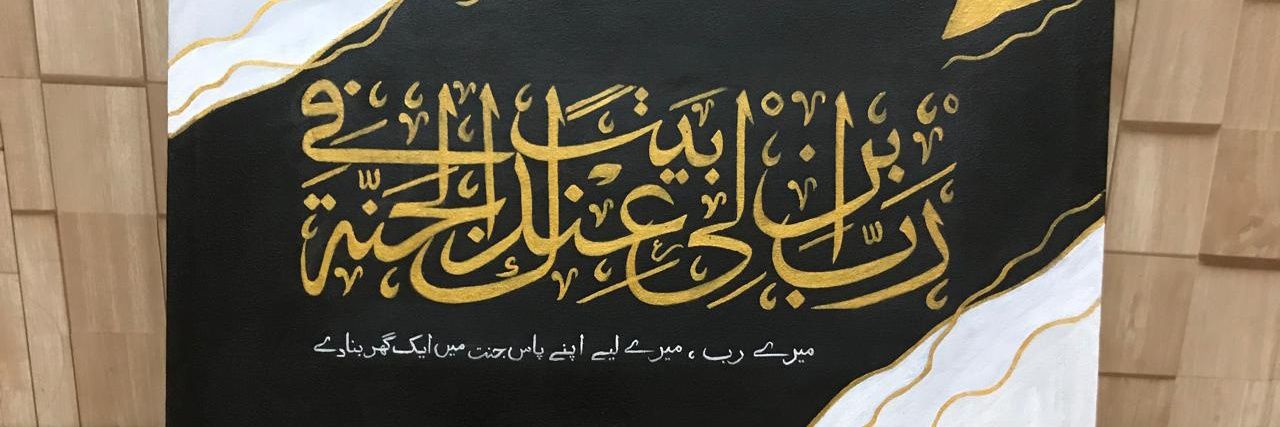 رَبِّ ابْنِ لِي عِندَكَ بَيْتًا فِي الْجَنَّةِ
میرے رب ، میرے لیے اپنے پاس جنت میں ایک گھر بنا دے